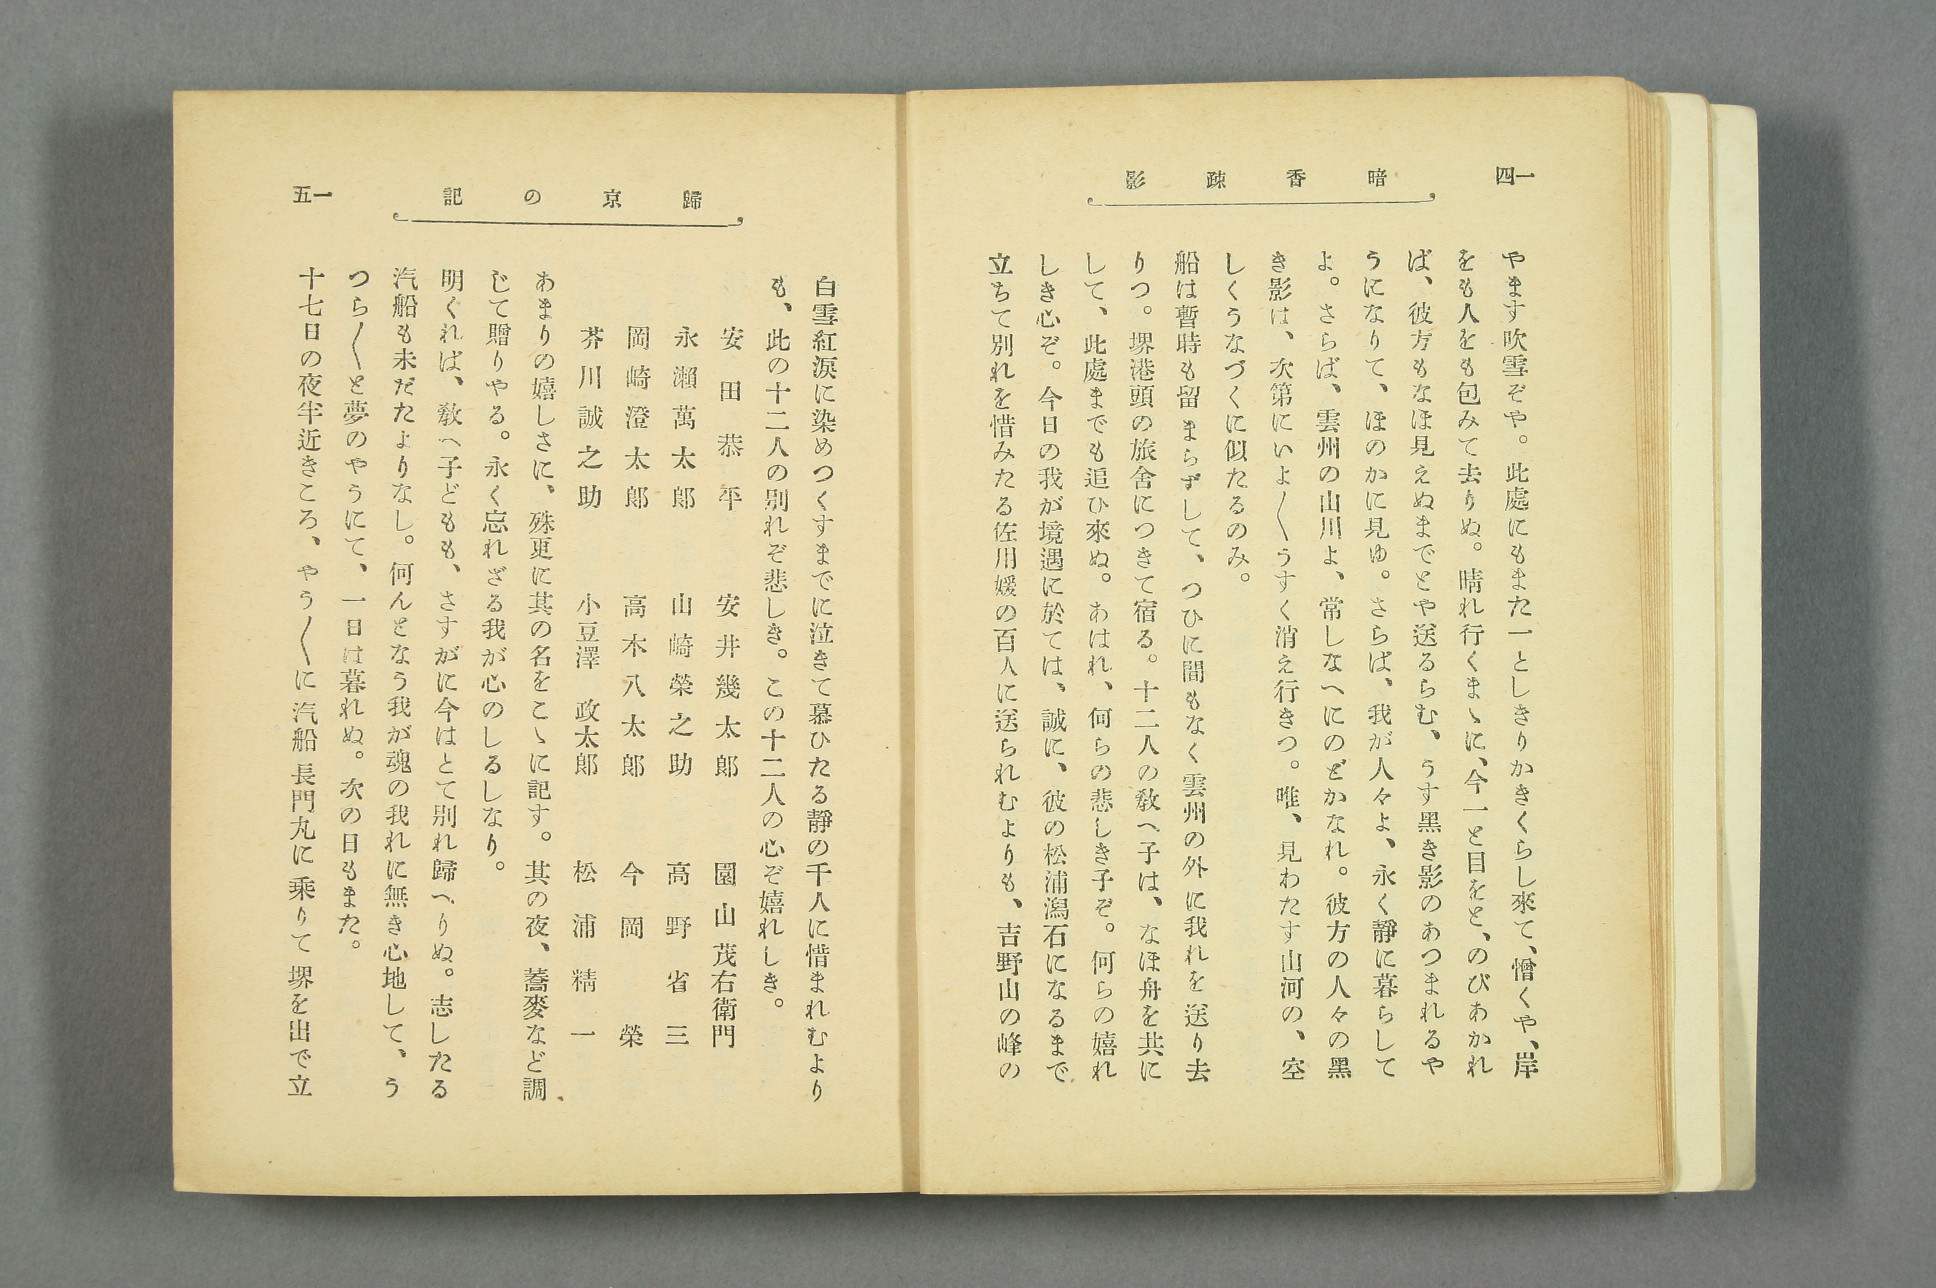 一四
暗香疎影
やます吹雪ぞや。此處にもまた一としきりかきくらし來て、憎くや、岸
をも人をも包みて去りぬ。晴れ行くまゝに、今一と目をと、のびあかれ
ば、彼方もなほ見えぬまでとや送るらむ、うす黑き影のあつまれるや
うになりて、ほのかに見ゆ。さらば、我が人々よ、永く靜に暮らして
よ。さらば、雲州の山川よ、常しなへにのどかなれ。彼方の人々の黑
き影は、次第にいよ〳〵うすく消え行きつ。唯、見わたす山河の、空
しくうなづくに似たるのみ。
船は暫時も留まらずして、つひに間もなく雲州の外に我れを送り去
りつ。堺港頭の旅舍につきて宿る。十二人の敎へ子は、なほ舟を共に
して、此處までも追ひ來ぬ。あはれ、何らの悲しき子ぞ。何らの嬉れ
しき心ぞ。今日の我が境遇に於ては、誠に、彼の松浦潟石になるまで
立ちて別れを惜みたる佐用媛の百人に送られむよりも、吉野山の峰の
歸京の記
一五
白雪紅淚に染めつくすまでに泣きて慕ひたる靜の千人に惜まれむより
も、此の十二人の別れぞ悲しき。この十二人の心ぞ嬉れしき。
安田恭平　安井幾太郞　園山茂右衞門
永瀨萬太郞　山崎榮之助　高野省三
岡崎澄太郞　高木八太郞　今岡榮
芥川誠之助　小豆澤政太郞　松浦精一
あまりの嬉しさに、殊更に其の名をこゝに記す。其の夜、蕎麥など調
じて贈りやる。永く忘れざる我が心のしるしなり。
明ぐれば、敎へ子どもも、さすがに今はとて別れ歸へりぬ。志したる
汽船も未だたよりなし。何んとなう我が魂の我れに無き心地して、う
つら〳〵と夢のやうにて、一日は暮れぬ。次の日もまた。
十七日の夜半近きころ、やう〳〵に汽船長門丸に乘りて堺を出で立